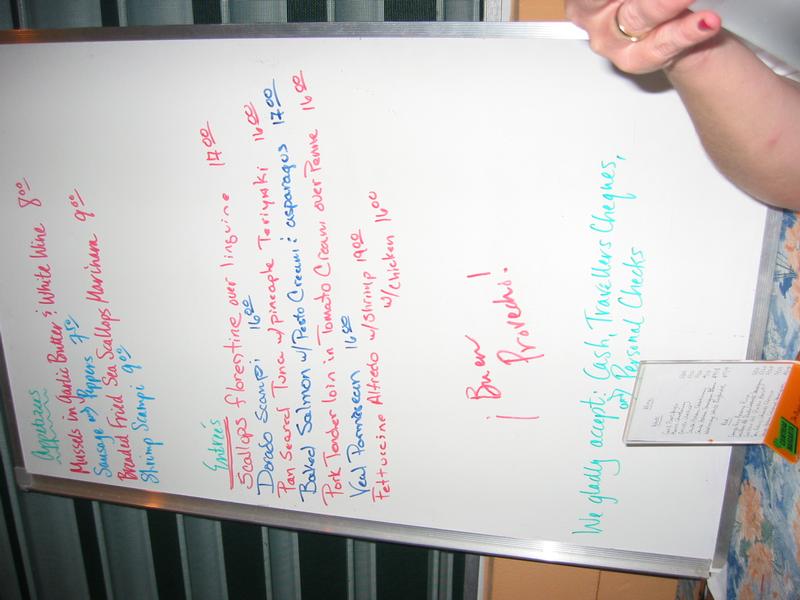 Appetizers
Mussels in Garlic Butter & White Wine 8.00
Sausage w/ Peppers 7.50
Breaded Fried Sea Scallops Marinara 9.00
Shrimp Scampi 9.00
Entreés
Scallops florentine over linguine 17.00
Dorado Scampi 16.00
Pan Seared Tuna w/ Pineapple Teriyaki 16.00
Baked Salmon w/ Pesto Cream & asparagus 17.00
Pork Tender loin in Tomato Cream over Penne 16.00
Veal Parmasean 16.00
Fettuccine Alfredo w/ Shrimp 19.00
w/ Chicken 16.00
¡ Buen
Provecho!
We gladly accept: Cash, Travellers Cheques,
and Personal Checks